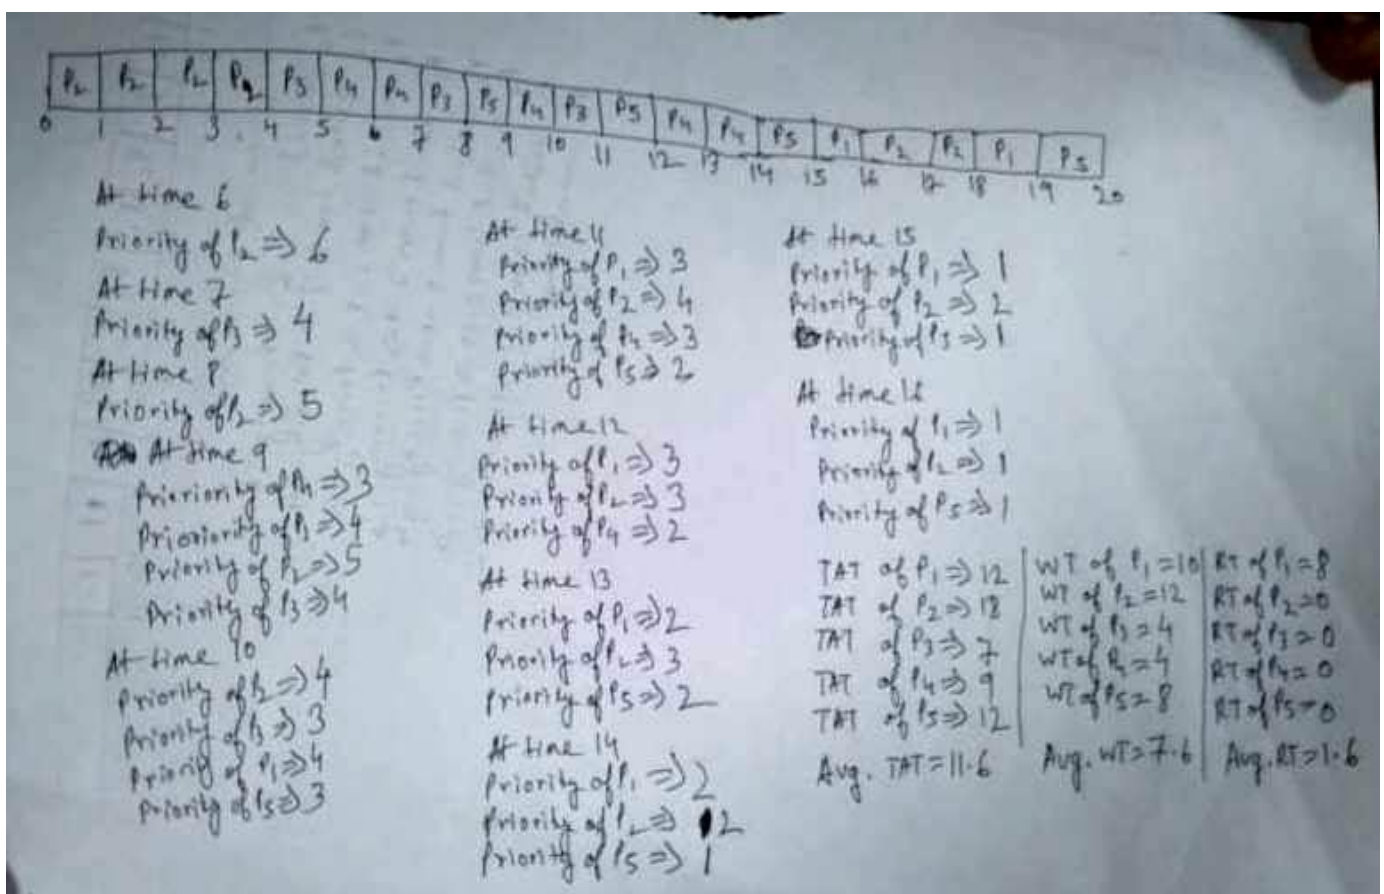 P2 P2 P2 P2 P3 P4 P4 P3 P5 P4 P3 P5 P4 P4 P5 P1 P2 P2 P1 P5
0 1 2 3 4 5 6 7 8 9 10 11 12 13 14 15 16 17 18 19 20
At time 6
Priority of P2 => 6
At time 7
Priority of P3 => 4
At time 8
Priority of P2 => 5
At time 9
Prioriority of P4 => 3
Prioriority of P1 => 4
Priority of P2 => 5
Priority of P3 => 4
At time 10
Priority of P2 => 4
Priority of P3 => 3
Priority of P1 => 4
Priority of P5 => 3
At time 11
Priority of P1 => 3
Priority of P2 => 4
Priority of P4 => 3
Priority of P5 => 2
At time 12
Priority of P1 => 3
Priority of P2 => 3
Priority of P4 => 2
At time 13
Priority of P1 => 2
Priority of P2 => 3
Priority of P5 => 2
At time 14
Priority of P1 => 2
Priority of P2 => 2
Priority of P5 => 1
At time 15
Priority of P1 => 1
Priority of P2 => 2
Priority of P5 => 1
At time 16
Priority of P1 => 1
Priority of P2 => 1
Priority of P5 => 1
TAT of P1 => 12
TAT of P2 => 18
TAT of P3 => 7
TAT of P4 => 9
TAT of P5 => 12
Avg. TAT = 11.6
WT of P1 = 10
WT of P2 = 12
WT of P3 = 4
WT of P4 = 4
WT of P5 = 8
Avg. WT = 7.6
RT of P1 = 8
RT of P2 = 0
RT of P3 = 0
RT of P4 = 0
RT of P5 = 0
Avg. RT = 1.6